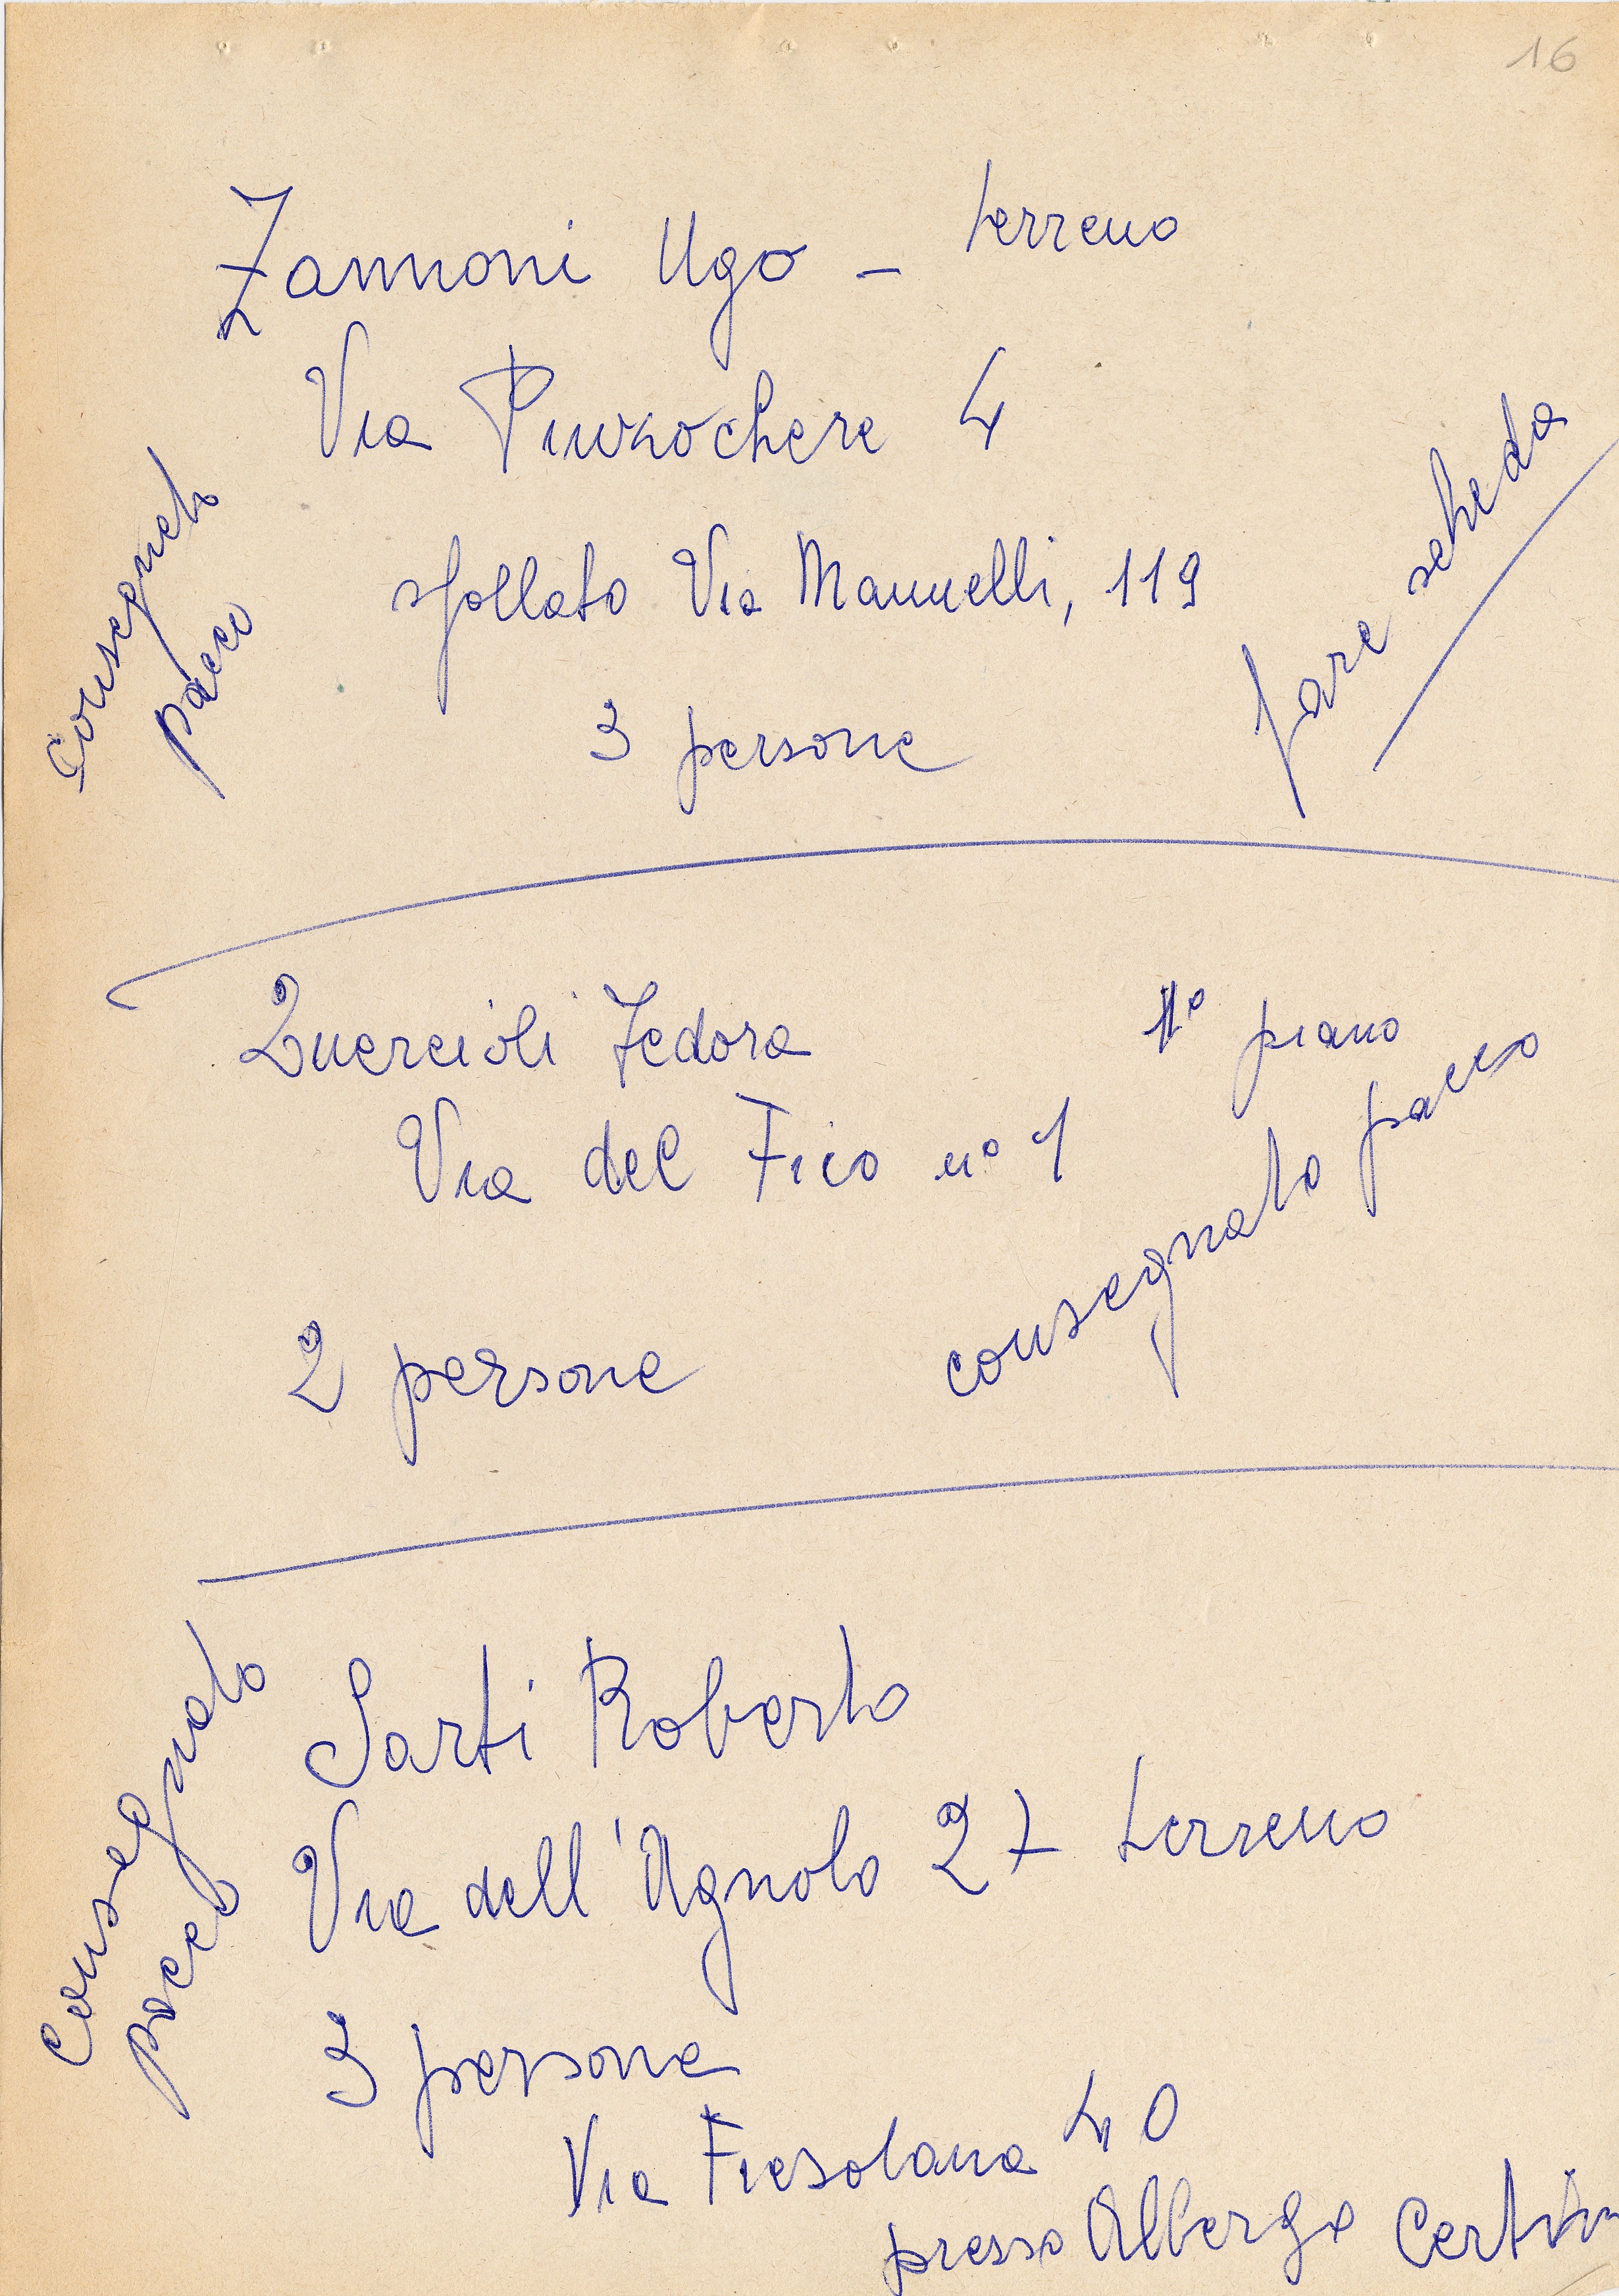 16
Zannoni Ugo - terreno
Via Pinzochere 4
sfollato Via Mannelli, 119
3 persone
Consegnato
pacco
fare scheda
Quercioli Fedora 1º piano
Via del Fico nº 1
2 persone
consegnato pacco
Sarti Roberto
Via dell'Agnolo 27 terreno
3 persone
Via Fiesolana 40
presso Albergo
Consegnato
pacco